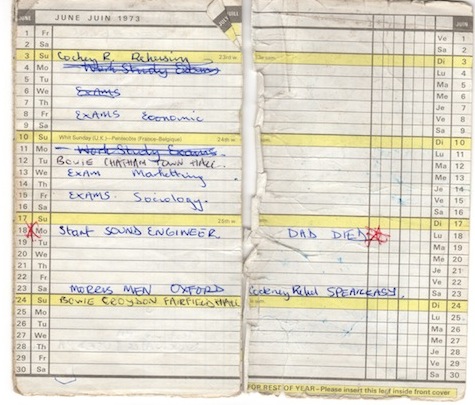 JUNE JUNE JUIN 1973 JUILL JULY JUNE
1 Fr Ve 1
2 Sa Sa 2
3 Su Cockney R. Rehersing 23rd w. 23e sem. Di 3
4 Mo Work Study Exams Lu 4
5 Tu Ma 5
6 We EXAMS Me 6
7 Th Je 7
8 Fr EXAMS Economic Ve 8
9 Sa Sa 9
10 Su Whit Sunday (U.K.) - Pentecôte (France-Belgique) 24th w. Di 10
11 Mo Work Study Exams. Lu 11
12 Tu BOWIE CHATHAM TOWN HALL. Ma 12
13 We EXAM Marketting Me 13
14 Th Je 14
15 Fr EXAMS. Sociology. Ve 15
16 Sa Sa 16
17 Su 25th w. Di 17
18 Mo Start SOUND ENGINEER DAD DIED Lu 18
19 Tu Ma 19
20 We Me 20
21 Th Je 21
22 Fr Ve 22
23 Sa MORRIS MEN OXFORD Cockney Rebel SPEAKEASY. Sa 23
24 Su BOWIE CROYDON FAIRFIELD HALL Di 24
25 Mo Lu 25
26 Tu Ma 26
27 We Me 27
28 Th Je 28
29 Fr Ve 29
30 Sa Sa 30
FOR BEST OF YEAR - Please insert this leaf inside front cover